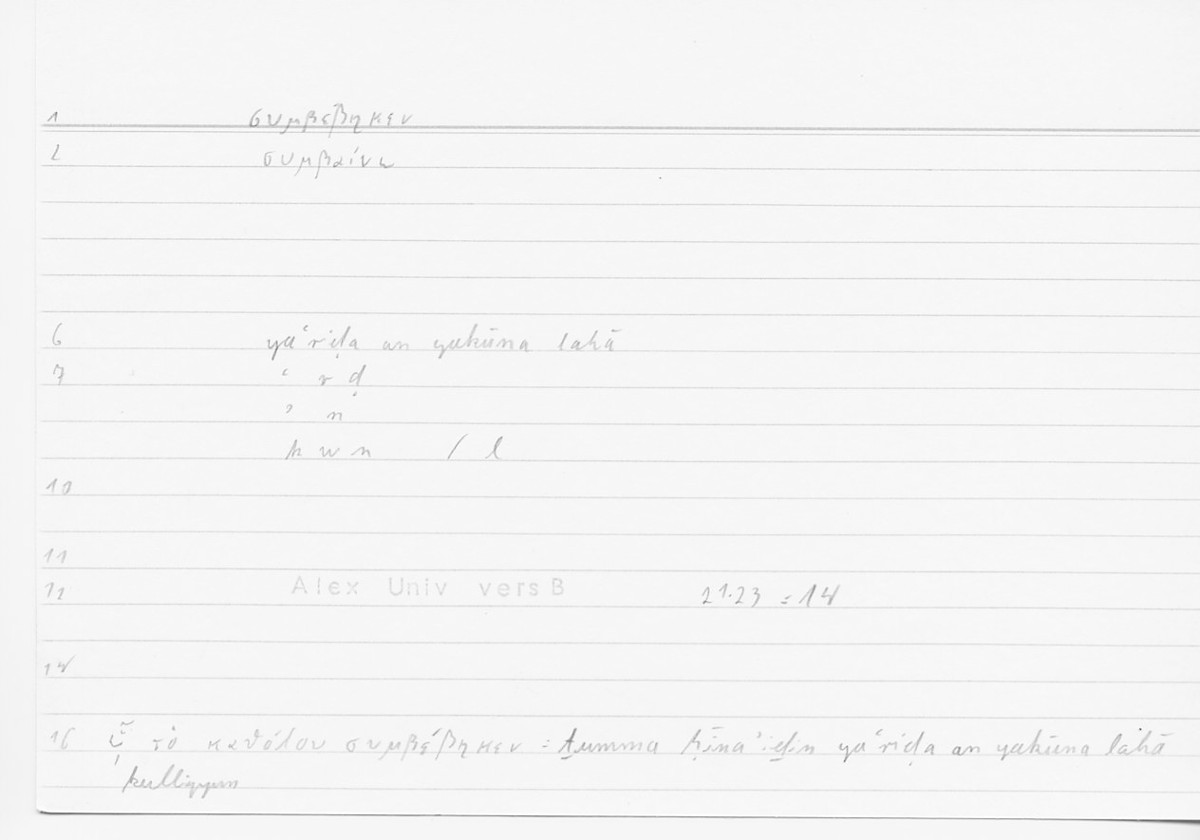 1 συμβέβηκεν
2 συμβαίνω
6 yaʿriḍa an yakūna lahā
7 ʿ r ḍ
ʾ n
k w n / l
10
11
12 Alex Univ vers B 21.23 = 14
14
16 ᾧ τὸ καθόλου συμβέβηκεν = ṯumma ḥīnaʾiḏin yaʿriḍa an yakūna lahā
kulliyyun